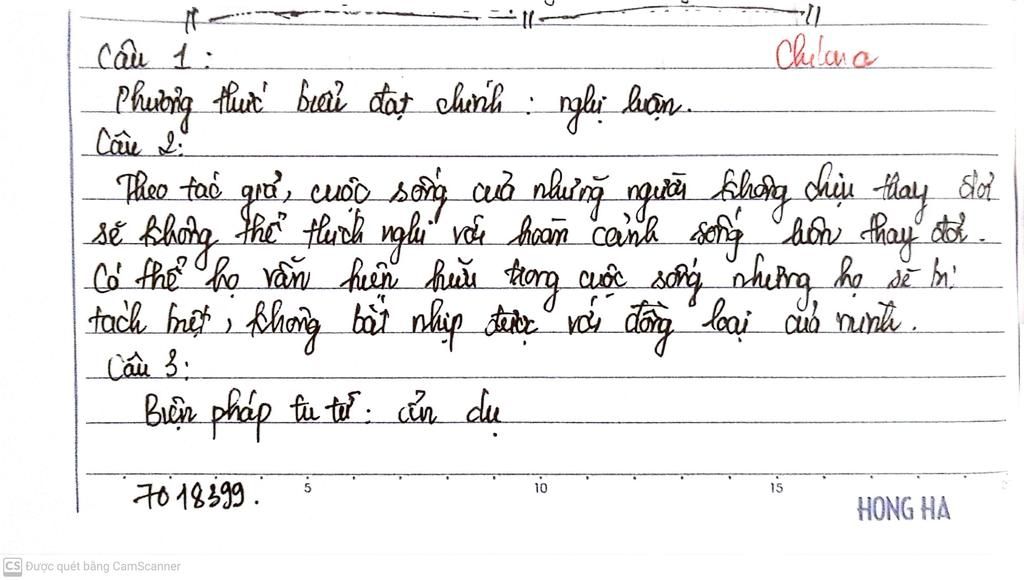 Câu 1:
Phương thức biểu đạt chính: nghị luận.
Câu 2:
Theo tác giả, cuộc sống của những người không chịu thay đổi
sẽ không thể thích nghi với hoàn cảnh sống luôn thay đổi.
Có thể họ vẫn hiện hữu trong cuộc sống nhưng họ sẽ bị
tách biệt, không bắt nhịp được với đồng loại của mình.
Câu 3:
Biện pháp tu từ: ẩn dụ
5 10 15
7018399.
HONG HA
CS Được quét bằng CamScanner